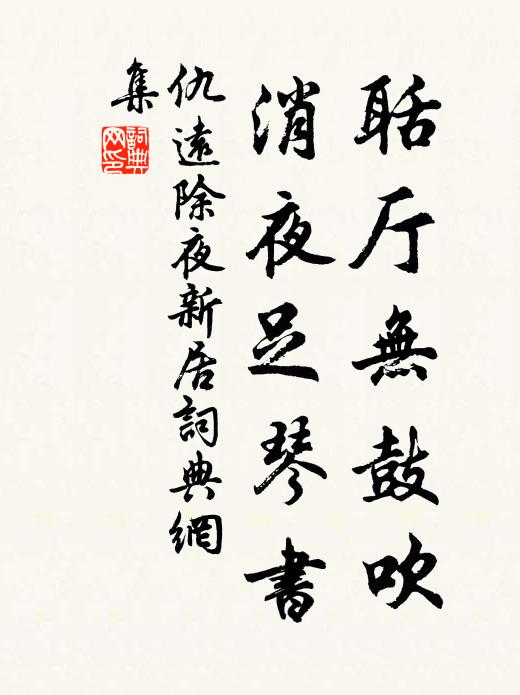 聒厅無鼓吹
消夜足琴書
仇遠除夜新居詞典網
集
詞典网印